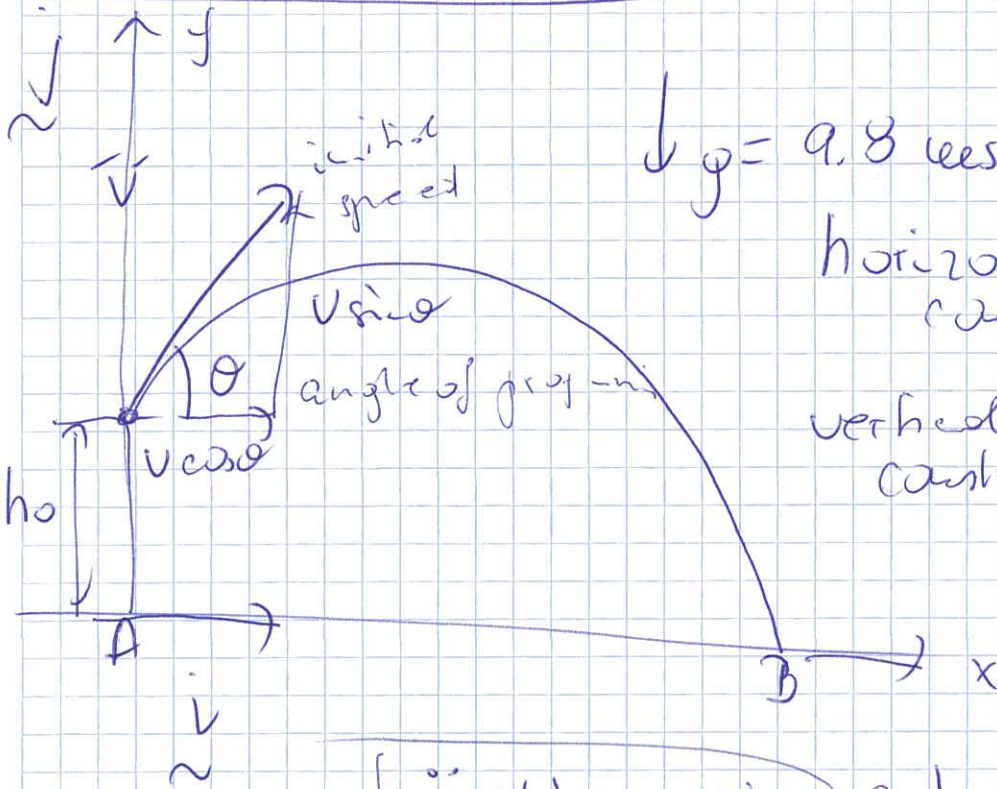 j
~
y
V
initial
speed
↓ g = 9.8 m
horizo
co
V sinθ
θ
angle of proj-n
V cosθ
vertical
const
h₀
A
B
x
i
~